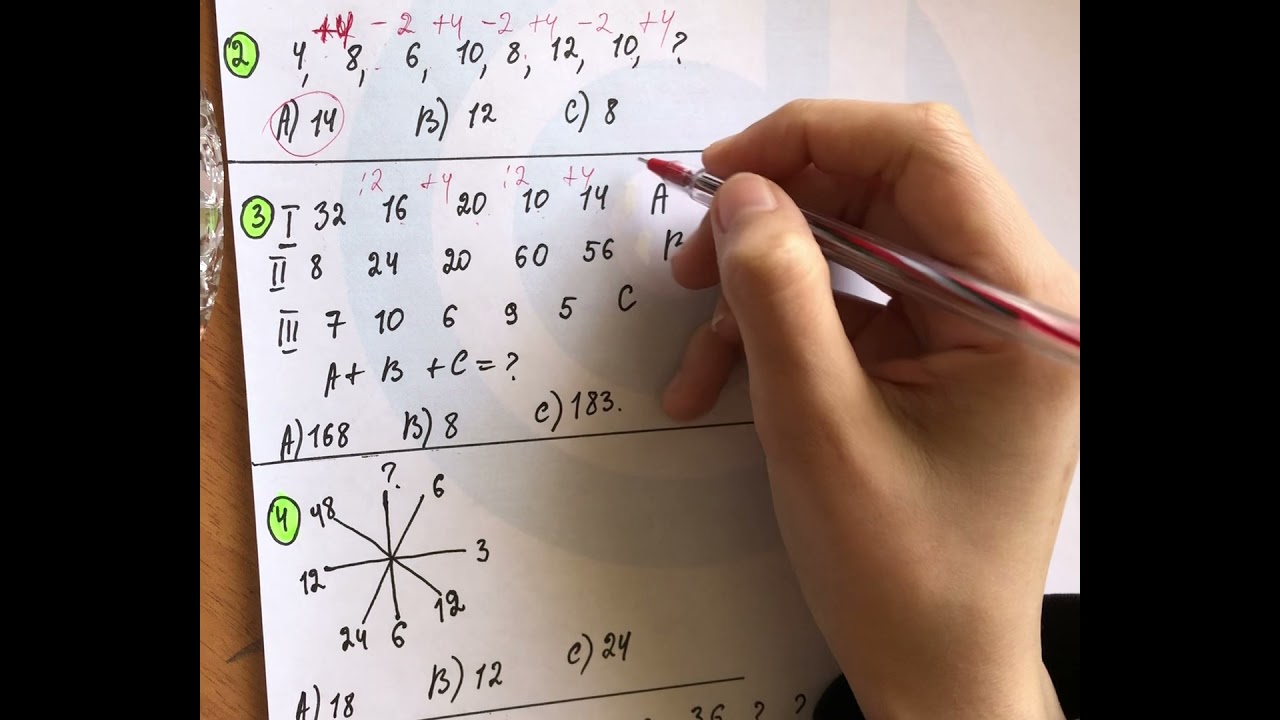 +4 -2 +4 -2 +4 -2 +4
2 4, 8, 6, 10, 8, 12, 10, ?
A) 14 B) 12 C) 8
:2 +4 :2 +4
3 I 32 16 20 10 14 A
II 8 24 20 60 56 B
III 7 10 6 9 5 C
A + B + C = ?
A) 168 B) 8 C) 183.
4
?
6
48
3
12
12
24
6
A) 18 B) 12 C) 24
36 ? ?